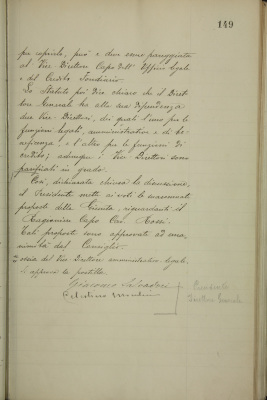 149
per capirlo, può e deve essere pareggiato
al Vice Direttore Capo dell'Ufficio legale
e del Credito Fondiario.
Lo Statuto poi dice chiaro che il Diret-
tore Generale ha alla sua dipendenza
due Vice Direttori, dei quali l'uno per le
funzioni legali, amministrative e di be-
neficenza, e l'altro per le funzioni di
credito; adunque i Vice Direttori sono
parificati in grado.
Così, dichiarata chiusa la discussione,
il Presidente mette ai voti le menzionate
proposte della Giunta, riguardanti il
Ragioniere Capo Cav. Rossi.
Tali proposte sono approvate ad una-
nimità dal Consiglio.
ossia del Vice Direttore amministrativo legale.
Si approva la postilla.
Giacomo
Presidente
Direttore Generale